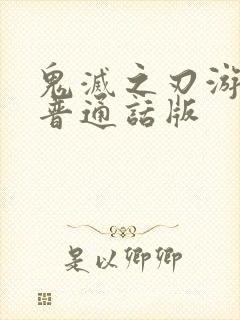 鬼滅之刃游
普通話版
是以卿卿